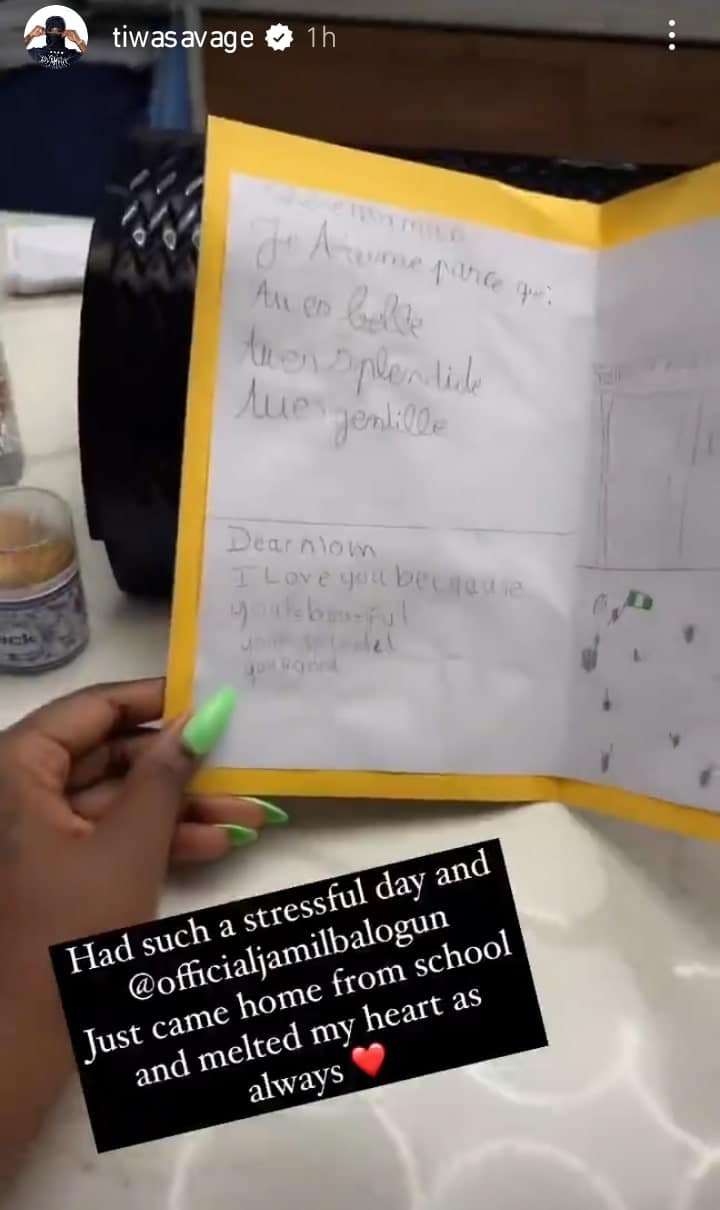 tiwasavage 1h
maman
Je t'aime parce que:
tu es belle
tu es splendide
tu es gentille
Dear mom
I Love you becquaue
Had such a stressful day and
@officialjamilbalogun
Just came home from school
and melted my heart as
always ❤️